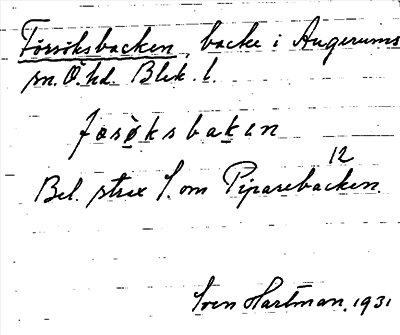 Försöksbacken, backe i Augerums
sn. Ö. hd. Blek. l.
fœsøksbaken
12
Bel. strax S. om Piparebacken.
Sven Hartman, 1931